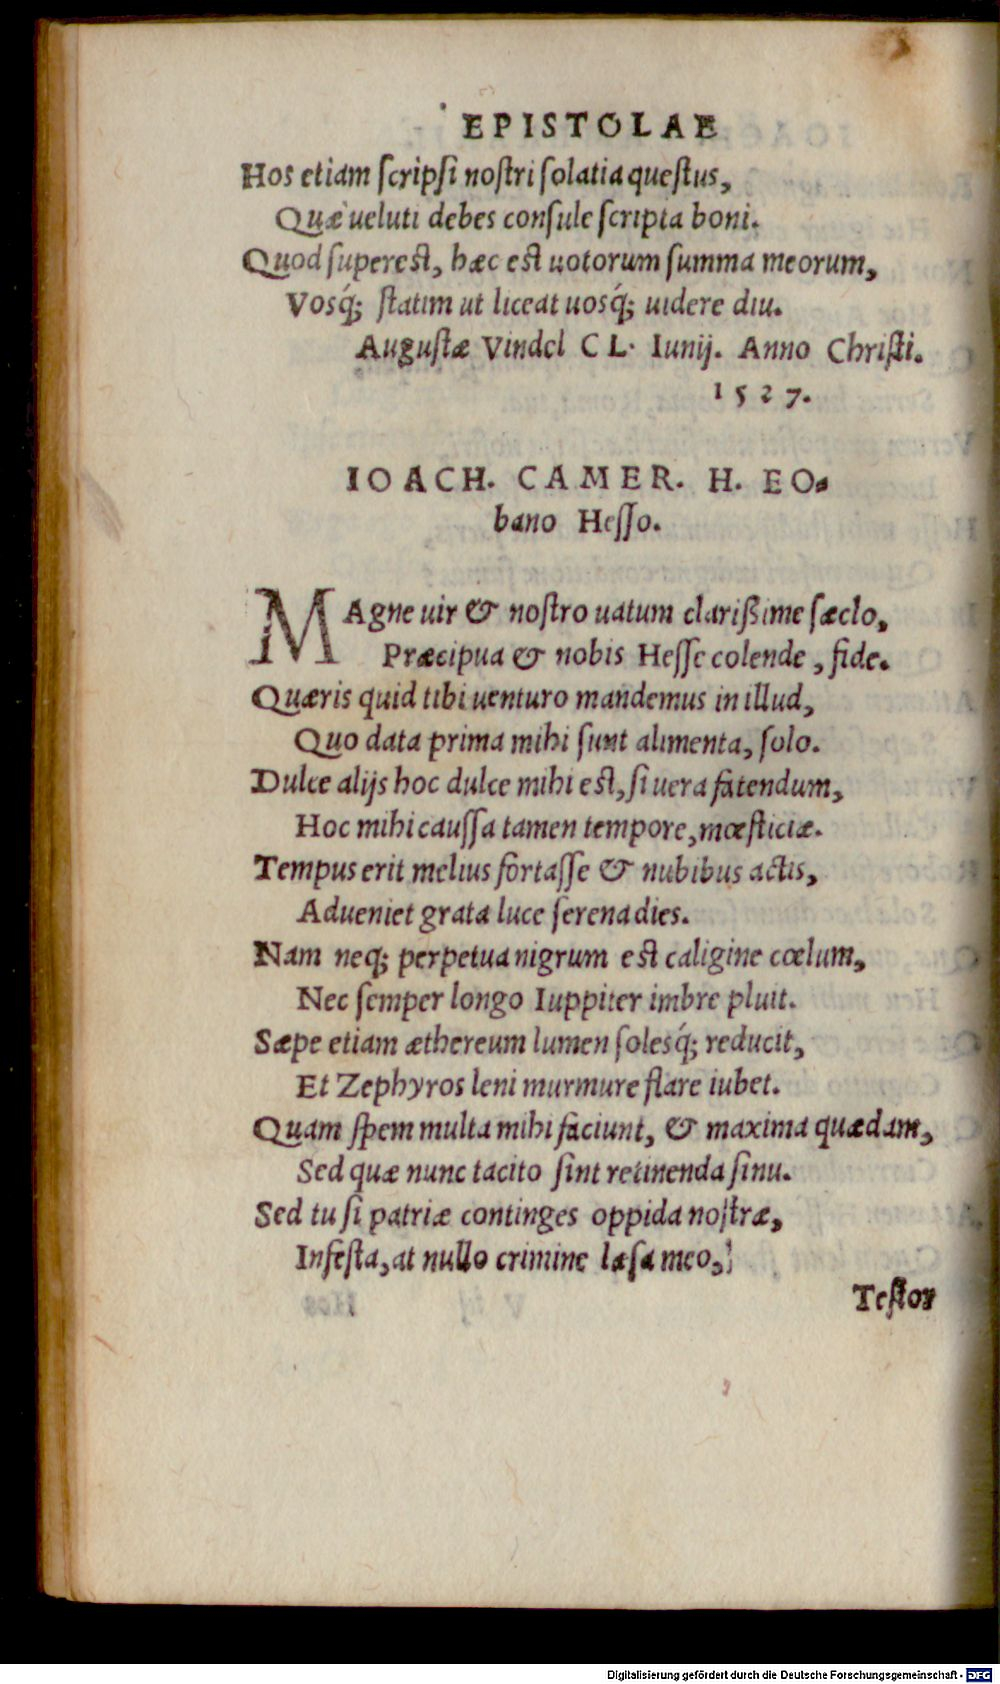 EPISTOLAE
Hos etiam ſcripſi noſtri ſolatia queſtus,
Quæ ueluti debes conſule ſcripta boni.
Quod ſupereſt, hæc eſt uotorum ſumma meorum,
Vosq́; ſtatim ut liceat uosq́; uidere diu.
Auguſtæ Vindel CL. Iunij. Anno Chriſti.
1527.
IOACH. CAMER. H. EO-
bano Heſſo.
MAgne uir & noſtro uatum clarißime ſæclo,
Præcipua & nobis Heſſe colende, fide.
Quæris quid tibi uenturo mandemus in illud,
Quo data prima mihi ſunt alimenta, ſolo.
Dulce alijs hoc dulce mihi eſt, ſi uera fatendum,
Hoc mihi cauſſa tamen tempore, mœſticiæ.
Tempus erit melius fortaſſe & nubibus actis,
Adueniet grata luce ſerena dies.
Nam neq; perpetua nigrum eſt caligine cœlum,
Nec ſemper longo Iuppiter imbre pluit.
Sæpe etiam æthereum lumen ſolesq́; reducit,
Et Zephyros leni murmure flare iubet.
Quam ſpem multa mihi faciunt, & maxima quædam,
Sed quæ nunc tacito ſint retinenda ſinu.
Sed tu ſi patriæ continges oppida noſtræ,
Infeſta, at nullo crimine læſa meo,
Teſtor
Digitalisierung gefördert durch die Deutsche Forschungsgemeinschaft - DFG